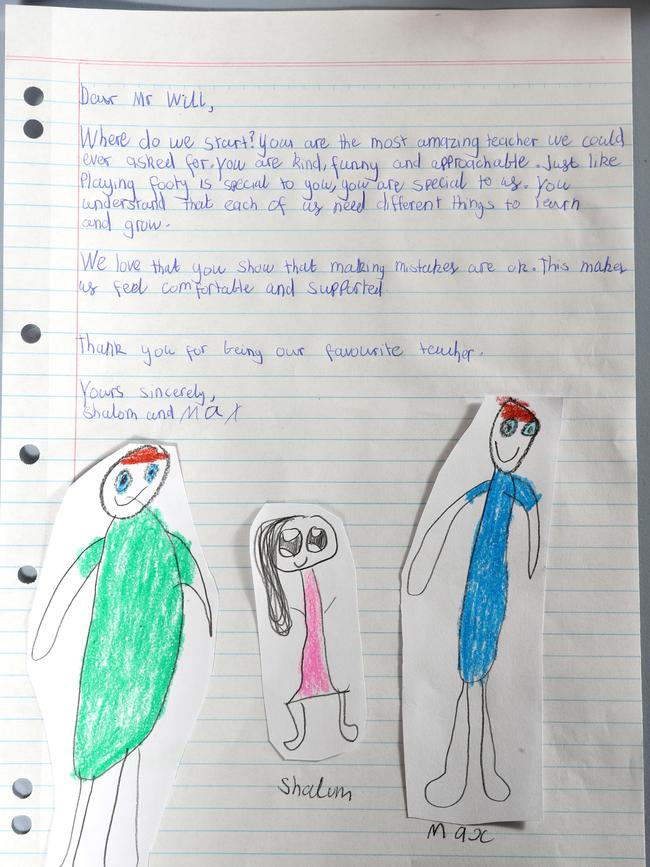 Dear Mr Will,
Where do we start? your are the most amazing teacher we could
ever asked for. you are kind, funny and approachable. Just like
Playing footy is special to you, you are special to us. You
understand that each of us need different things to learn
and grow.
We love that you show that making mistakes are ok. This makes
us feel comfortable and supported
Thank you for being our favourite teacher.
Yours sincerely,
Shalom and Max
Shalom
Max